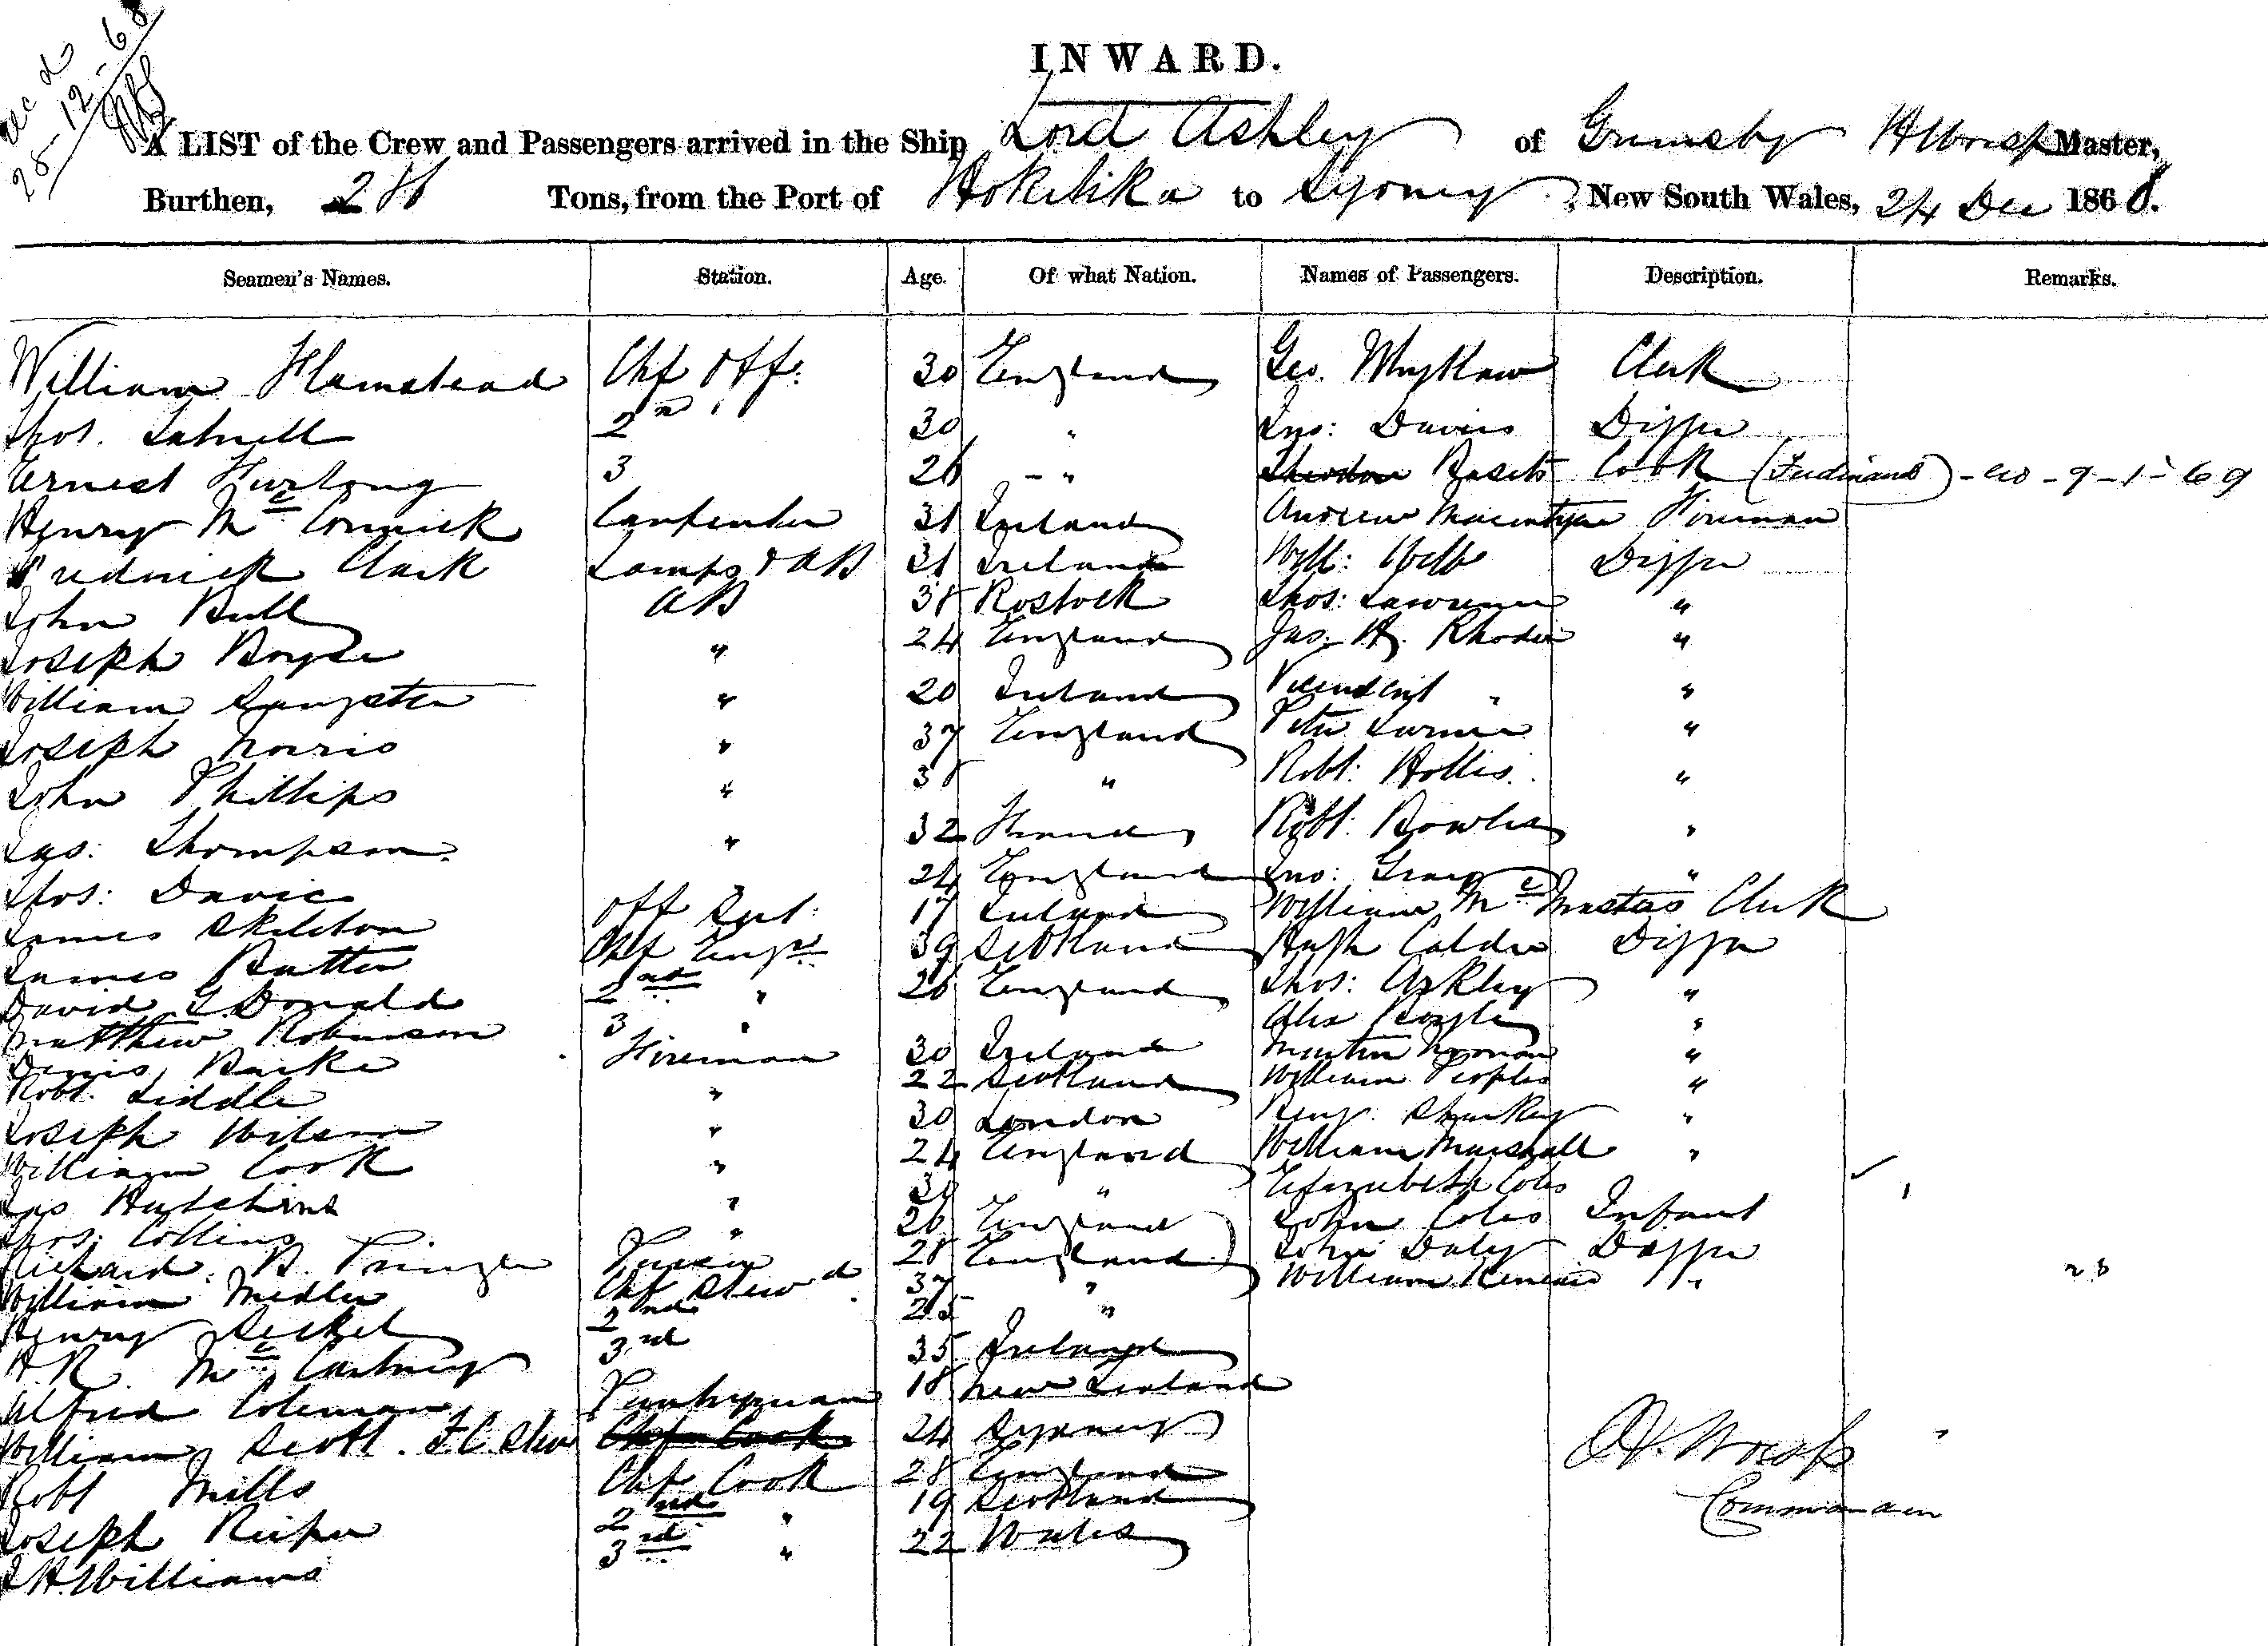 25-12-68
INWARD.
A LIST of the Crew and Passengers arrived in the Ship Lord Ashley of Grimsby Master,
Burthen, Tons, from the Port of Hokitika to Sydney, New South Wales, 24 Dec 1868.
Seamen's Names. Station. Age. Of what Nation. Names of Passengers. Description. Remarks.
William Hamstead Chf Off: 30 England Geo. Clerk
Thos. 2nd " 30 " Jno: Davies Digger
Ernest 3 26 - " Theodore Cook (Ferdinand) - 9-1-69
Henry McCormick Carpenter 31 Ireland Andrew Macintyre Fireman
Fredrick Clark Lamps & AB 31 Ireland Will: Webb Digger
John Bull AB 38 Rostock Thos: Lawrence "
Joseph Boyse " 24 England Jas. H. Rhodes "
William Sangster " 20 Ireland "
Joseph Norris " 37 England Peter "
John Phillips " 38 " Robt: Hollis "
Jas: Thompson " 32 Robt: Bowles "
Thos: Davies 24 England Jno: Gray "
James Skelton Off Sert: 17 Ireland William McMasters Clerk
James Batten Chf Engr 39 Scotland Hugh Calder Digger
David G. Donald 2nd " 26 England Thos: "
Matthew Robinson 3 " Alex Boyle "
Denis Burke Fireman 30 Ireland Martin Noonan "
Robt. Liddle " 22 Scotland William Peoples "
Joseph Wilson " 30 London Benj. Sharkey "
William Cook " 24 England William Marshall "
Jas Hutchins " 30 " Elizabeth Coles
Thos: Collins " 26 England John Coles Infant
Richard B. Pringle 28 England John Daly Digger
William Medler Chf Stewd 37 " William "
Henry 2nd 25 "
H.R. McCartney 3rd 35 Ireland
Alfred Coleman Pantryman 18 New Zealand
William Scott. F.C. Stw Chf Cook 24 Sydney
Robt Mills Chf Cook 28 England
Joseph 2nd " 19 Scotland
J.H. Williams 3rd " 22 Wales
23
Commander